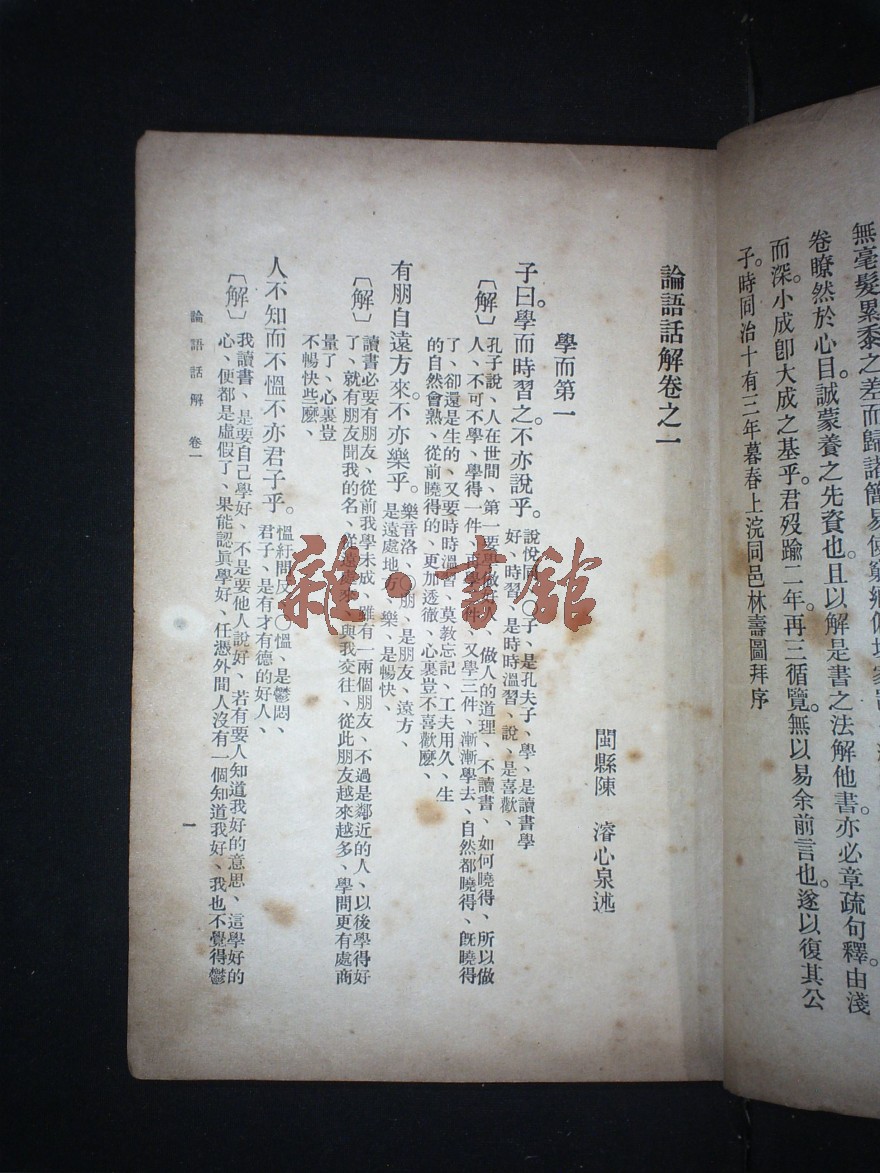 無毫髮累黍之差而歸諸簡易使窮鄉僻
卷瞭然於心目誠蒙養之先資也。且以解是書之法解他書。亦必章疏句釋。由淺
而深。小成卽大成之基乎。君歿踰二年。再三循覽。無以易余前言也。遂以復其公
子。時同治十有三年暮春上浣同邑林壽圖拜序
論語話解卷之一
閩縣陳 濬心泉述
學而第一
子曰。學而時習之。不亦說乎。
說悅同、〇子、是孔夫子、學、是讀書學
好、時習、是時時溫習、說、是喜歡、
〔解〕
孔子說、人在世間、第一要做人、做人的道理、不讀書、如何曉得、所以做
人、不可不學、學得一件、再學二件、又學三件、漸漸學去、自然都曉得、旣曉得
了、卻還是生的、又要時時溫習、莫教忘記、工夫用久、生
的自然會熟、從前曉得的、更加透徹、心裏豈不喜歡麼、
有朋自遠方來。不亦樂乎。
樂音洛、〇朋、是朋友、遠方、
是遠處地方、樂、是暢快、
〔解〕
讀書必要有朋友、從前我學未成、雖有一兩個朋友、不過是鄰近的人、以後學得好
了、就有朋友聞我的名、從遠處來、與我交往、從此朋友越來越多、學問更有處商
量了、心裏豈
不暢快些麼、
人不知而不慍。不亦君子乎。
慍紆問反、〇慍、是鬱悶、
君子、是有才有德的好人、
〔解〕
我讀書、是要自己學好、不是要他人說好、若有要人知道我好的意思、這學好的
心、便都是虛假了、果能認眞學好、任憑外間人沒有一個知道我好、我也不覺得鬱
論語話解 卷一
一
雜·書館